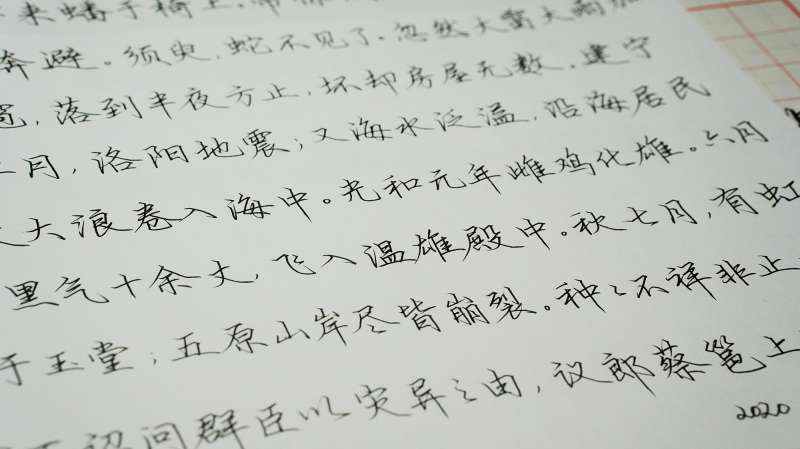 来蟠于椅上。帝
奔避。须臾,蛇不见了。忽然大雷大雨加
雹,落到半夜方止,坏却房屋无数。建宁
二月,洛阳地震;又海水泛温,沿海居民
大浪卷入海中。光和元年雌鸡化雄。六月
黑气十余丈,飞入温雄殿中。秋七月,有虹
于玉堂;五原山岸尽皆崩裂。种〻不祥非止
诏问群臣以灾异之由,议郎蔡邕上
2020